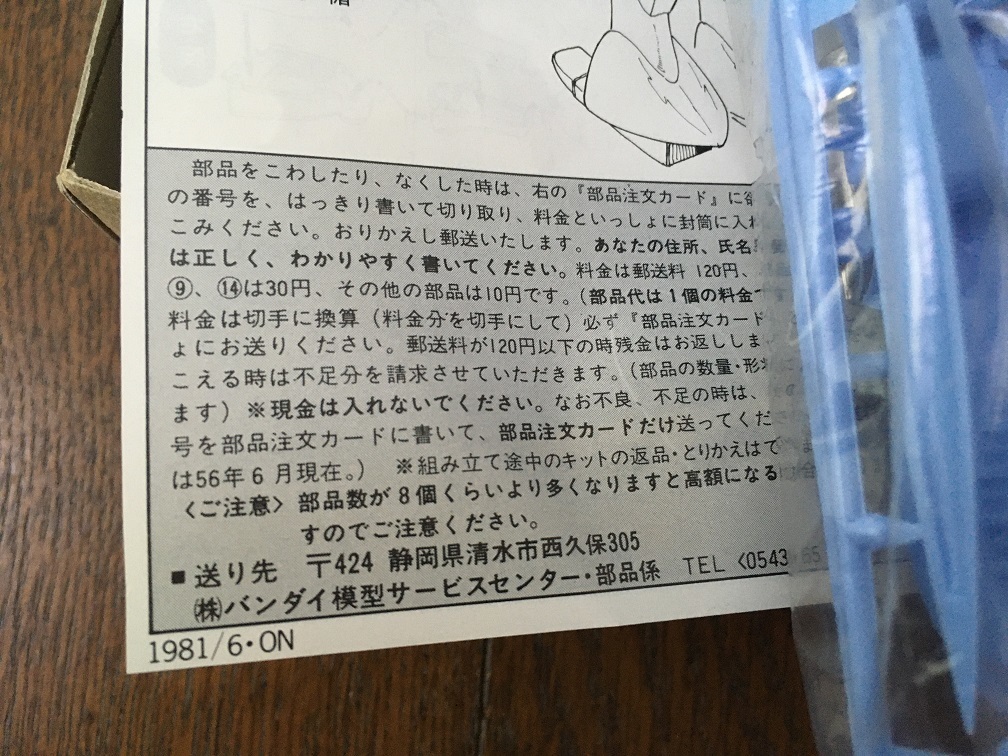 部品をこわしたり、なくした時は、右の『部品注文カード』に
の番号を、はっきり書いて切り取り、料金といっしょに封筒に入れ
こみください。おりかえし郵送いたします。あなたの住所、氏名
は正しく、わかりやすく書いてください。料金は郵送料 120円、
⑨、⑭は30円、その他の部品は10円です。(部品代は1個の料金で
料金は切手に換算(料金分を切手にして)必ず『部品注文カード
ょにお送りください。郵送料が120円以下の時残金はお返ししま
こえる時は不足分を請求させていただきます。(部品の数量・形状
ます)※現金は入れないでください。なお不良、不足の時は、
号を部品注文カードに書いて、部品注文カードだけ送ってくだ
は56年6月現在。) ※組み立て途中のキットの返品・とりかえはで
〈ご注意〉部品数が8個くらいより多くなりますと高額になる
すのでご注意ください。
■送り先 〒424 静岡県清水市西久保305
㈱バンダイ模型サービスセンター・部品係 TEL〈0543
1981/6・ON